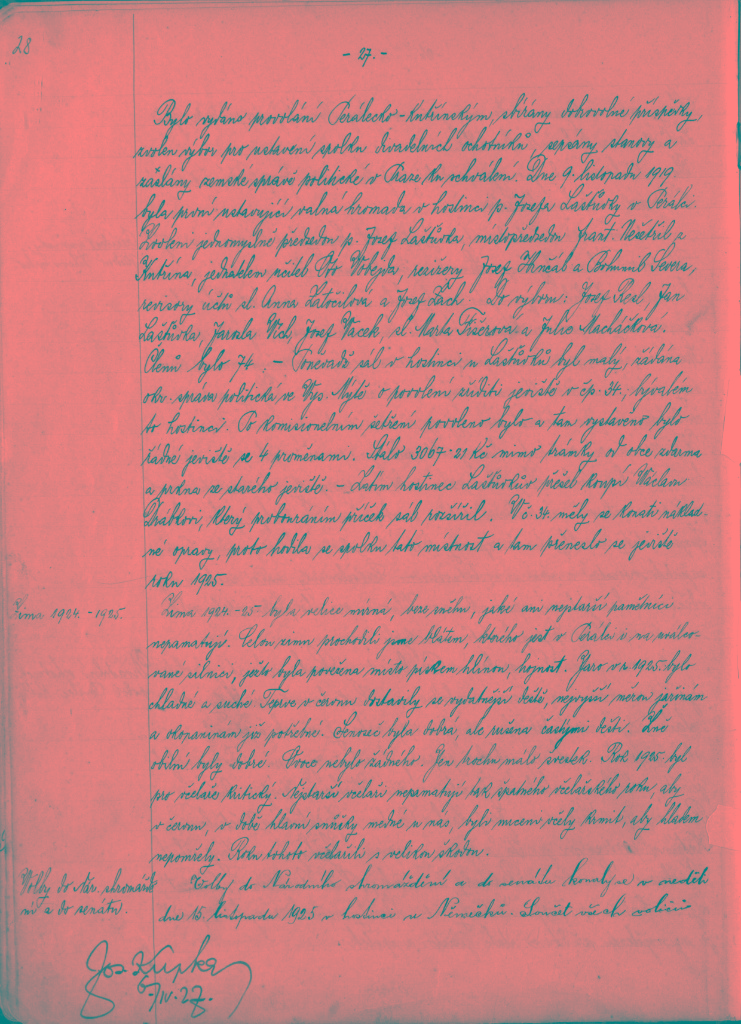 28
- 27. -
Bylo vydáno provolání Perálecko-Kutřínským, sbírány dobrovolné příspěvky
zvolen výbor pro ustavení spolku divadelních ochotníků, sepsány stanovy a
zaslány zemské správě politické v Praze ku schválení. Dne 9. listopadu 1919
byla první ustavující valná hromada v hostinci p. Josefa Laštůvky v Perálci.
Zvoleni jednomyslně předsedou p. Josef Laštůvka, místopředsedou Frant. Nešetřil z
Kutřína, jednatelem učitel Ot. Vobejda, režisery Josef Hněčál a Bohumil Severa,
revisory účtů sl. Anna Zatočilova a Josef Zach. Do výboru: Josef Resl, Jan
Laštůvka, Jarosla Vích, Josef Vacek, sl. Marta Fišerova a Julie Macháčková.
Členů bylo 74. - Poněvadž sál v hostinci u Laštůvků byl malý, žádána
okr. správa politická ve Vys. Mýtě o povolení zříditi jeviště v čp. 34., bývalém
to hostinci. Po komisionelním šetření povoleno bylo a tam vystavěno bylo
řádné jeviště se 4 proměnami. Stálo 3067·21 Kč mimo trámky od obce zdarma
a prkna ze starého jeviště. - Zatím hostinec Laštůvkův přešel koupí Václavu
Drábkovi, který probouráním příček sál rozšířil. V č. 34. měly se konati náklad-
né opravy, proto hodila se spolku tato místnost a tam přeneslo se jeviště
roku 1925.
Zima 1924. - 1925.
Zima 1924.-25 byla velice mírná, beze sněhu, jaké ani nejstarší pamětníci
nepamatují. Celou zimu prochodili jsme blátem, kterého jest v Perálci i na válco-
vané silnici, ježto byla povežena místo pískem hlínou, hojnost. Jaro v r. 1925 bylo
chladné a suché. Teprve v červnu dostavily se vydatnější deště, nejvyšší měrou jařinám
a okopaninám již potřebné. Senoseč byla dobrá, ale rušena častými dešti. Žně
obilní byly dobré. Ovoce nebylo žádného. Jen trochu málo švestek. Rok 1925 byl
pro včelaře kritický. Nejstarší včelaři nepamatují tak špatného včelařského roku, aby
v červnu, v době hlavní snůšky medné u nás, byli nuceni včely krmit, aby hladem
nepomřely. Roku tohoto včelařili s velikou škodou.
Volby do Nár. shromáždě
ní a do senátu.
Volby do Národního shromáždění a do senátu konaly se v neděli
dne 15. listopadu 1925 v hostinci u Němečků. Součet všech voličů
Jos Kupka
6/IV. 27.